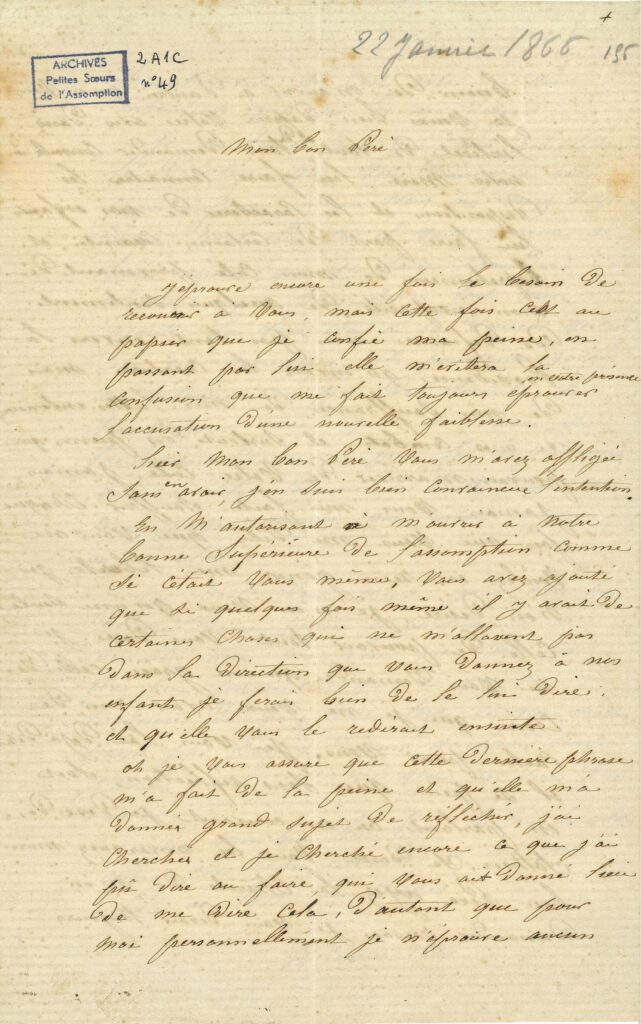 +
22 Janvier 1866 195
ARCHIVES
Petites Sœurs
de l'Assomption
2A1C
n° 49
Mon bon Père
j'éprouve encore une fois le besoin de
recourir à Vous, mais cette fois c'est au
papier que je confie ma peine, en
passant par lui elle m'évitera la
confusion que me fait toujours éprouver en votre présence
l'accusation d'une nouvelle faiblesse.
hier Mon bon Père Vous m'avez affligée
sans en avoir, j'en suis bien convaincue l'intention
En M'autorisant à m'ouvrir à Notre
bonne Supérieure de l'assomption comme
si c'était Vous même, Vous avez ajouté
que si quelques fois même il y avait de
certaines choses qui ne m'allavent pas
dans la direction que vous donnez à nos
enfants je ferais bien de le lui dire.
et qu'elle vous le redirait ensuite.
oh je Vous assure que cette dernière phrase
m'a fait de la peine et qu'elle m'a
donnée grand sujet de réfléchir, j'ai
cherchez et je cherche encore ce que j'ai
pû dire ou faire qui Vous ait donné lieu
de me dire cela, d'autant que pour
moi personnellement je n'éprouve aucun